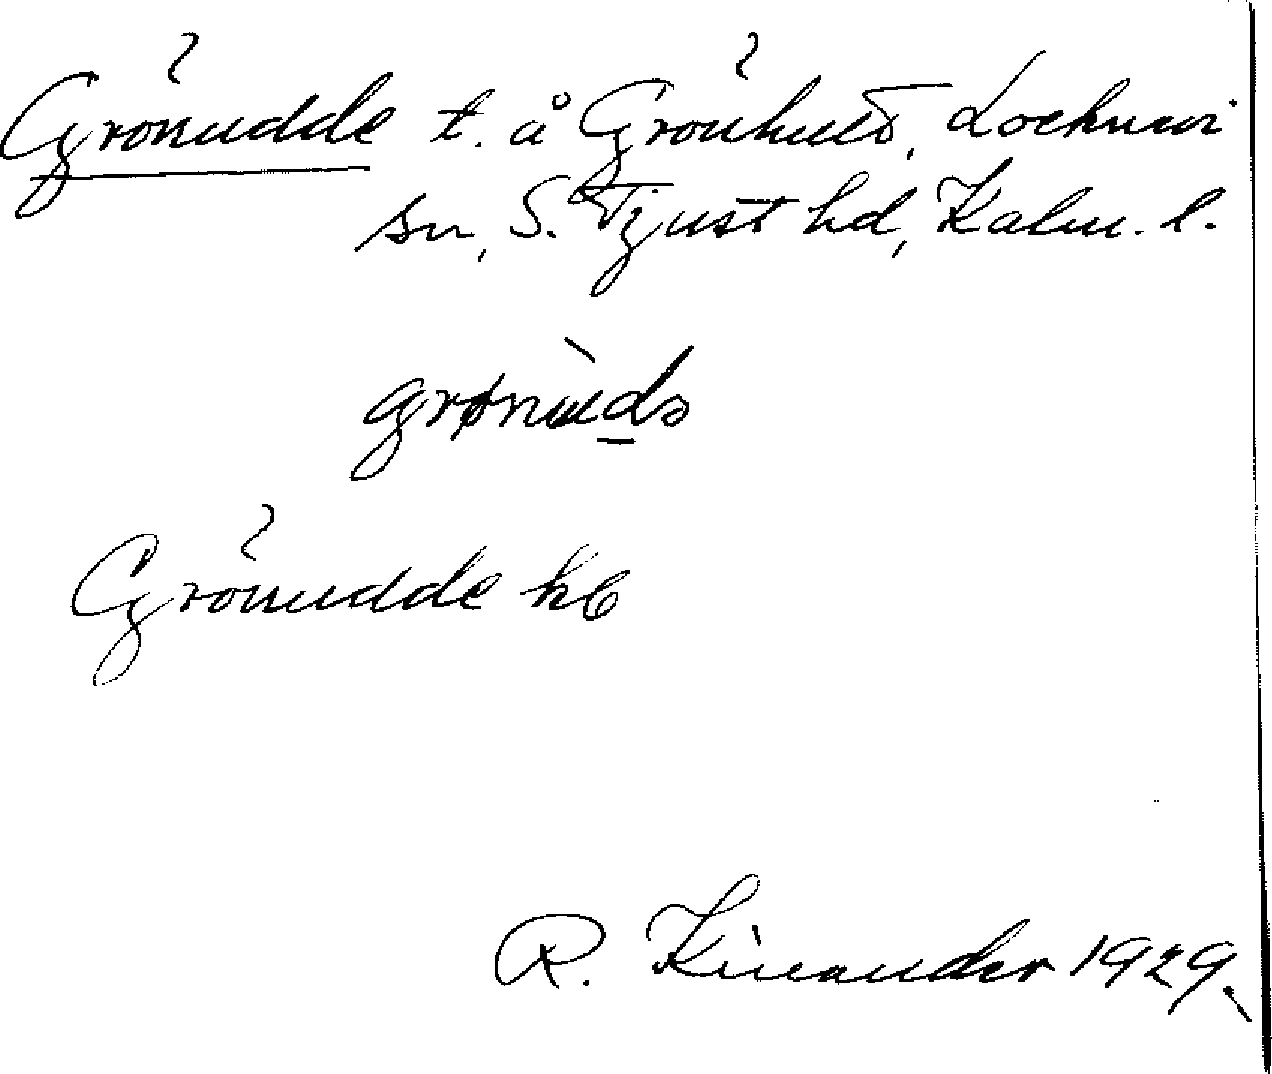 Grönudde t. å Grönhult, Locknevi
sn, S. Tjust hd, Kalm. l.
grønùdə
Grönudde kb
R. Kinander 1929.